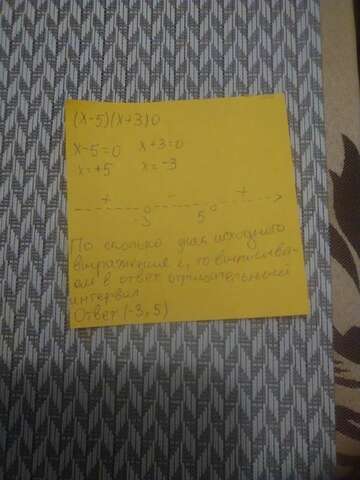 (x-5)(x+3)0
x-5=0 x+3=0
x=+5 x=-3
+ - +
-3 5
По сколько знак исходного
выражения <, то выписыва-
ем в ответ отрицательный
интервал
Ответ (-3, 5)